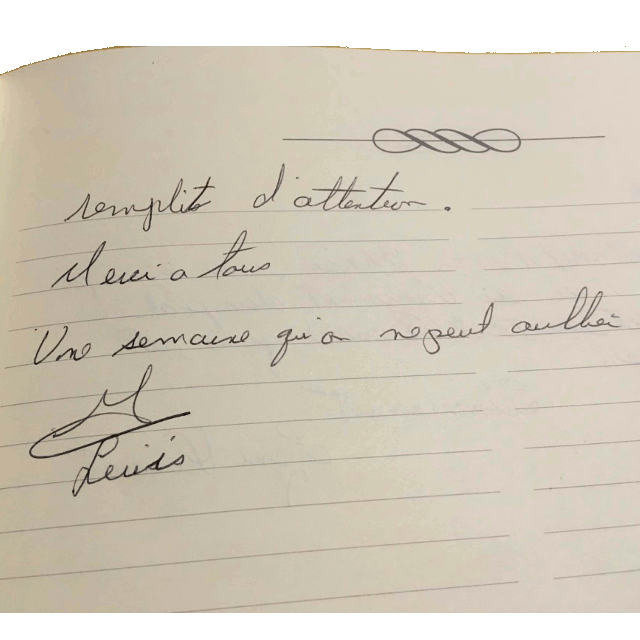 remplit d'attention.
Merci a tous
Une semaine qu'on ne peut oublier